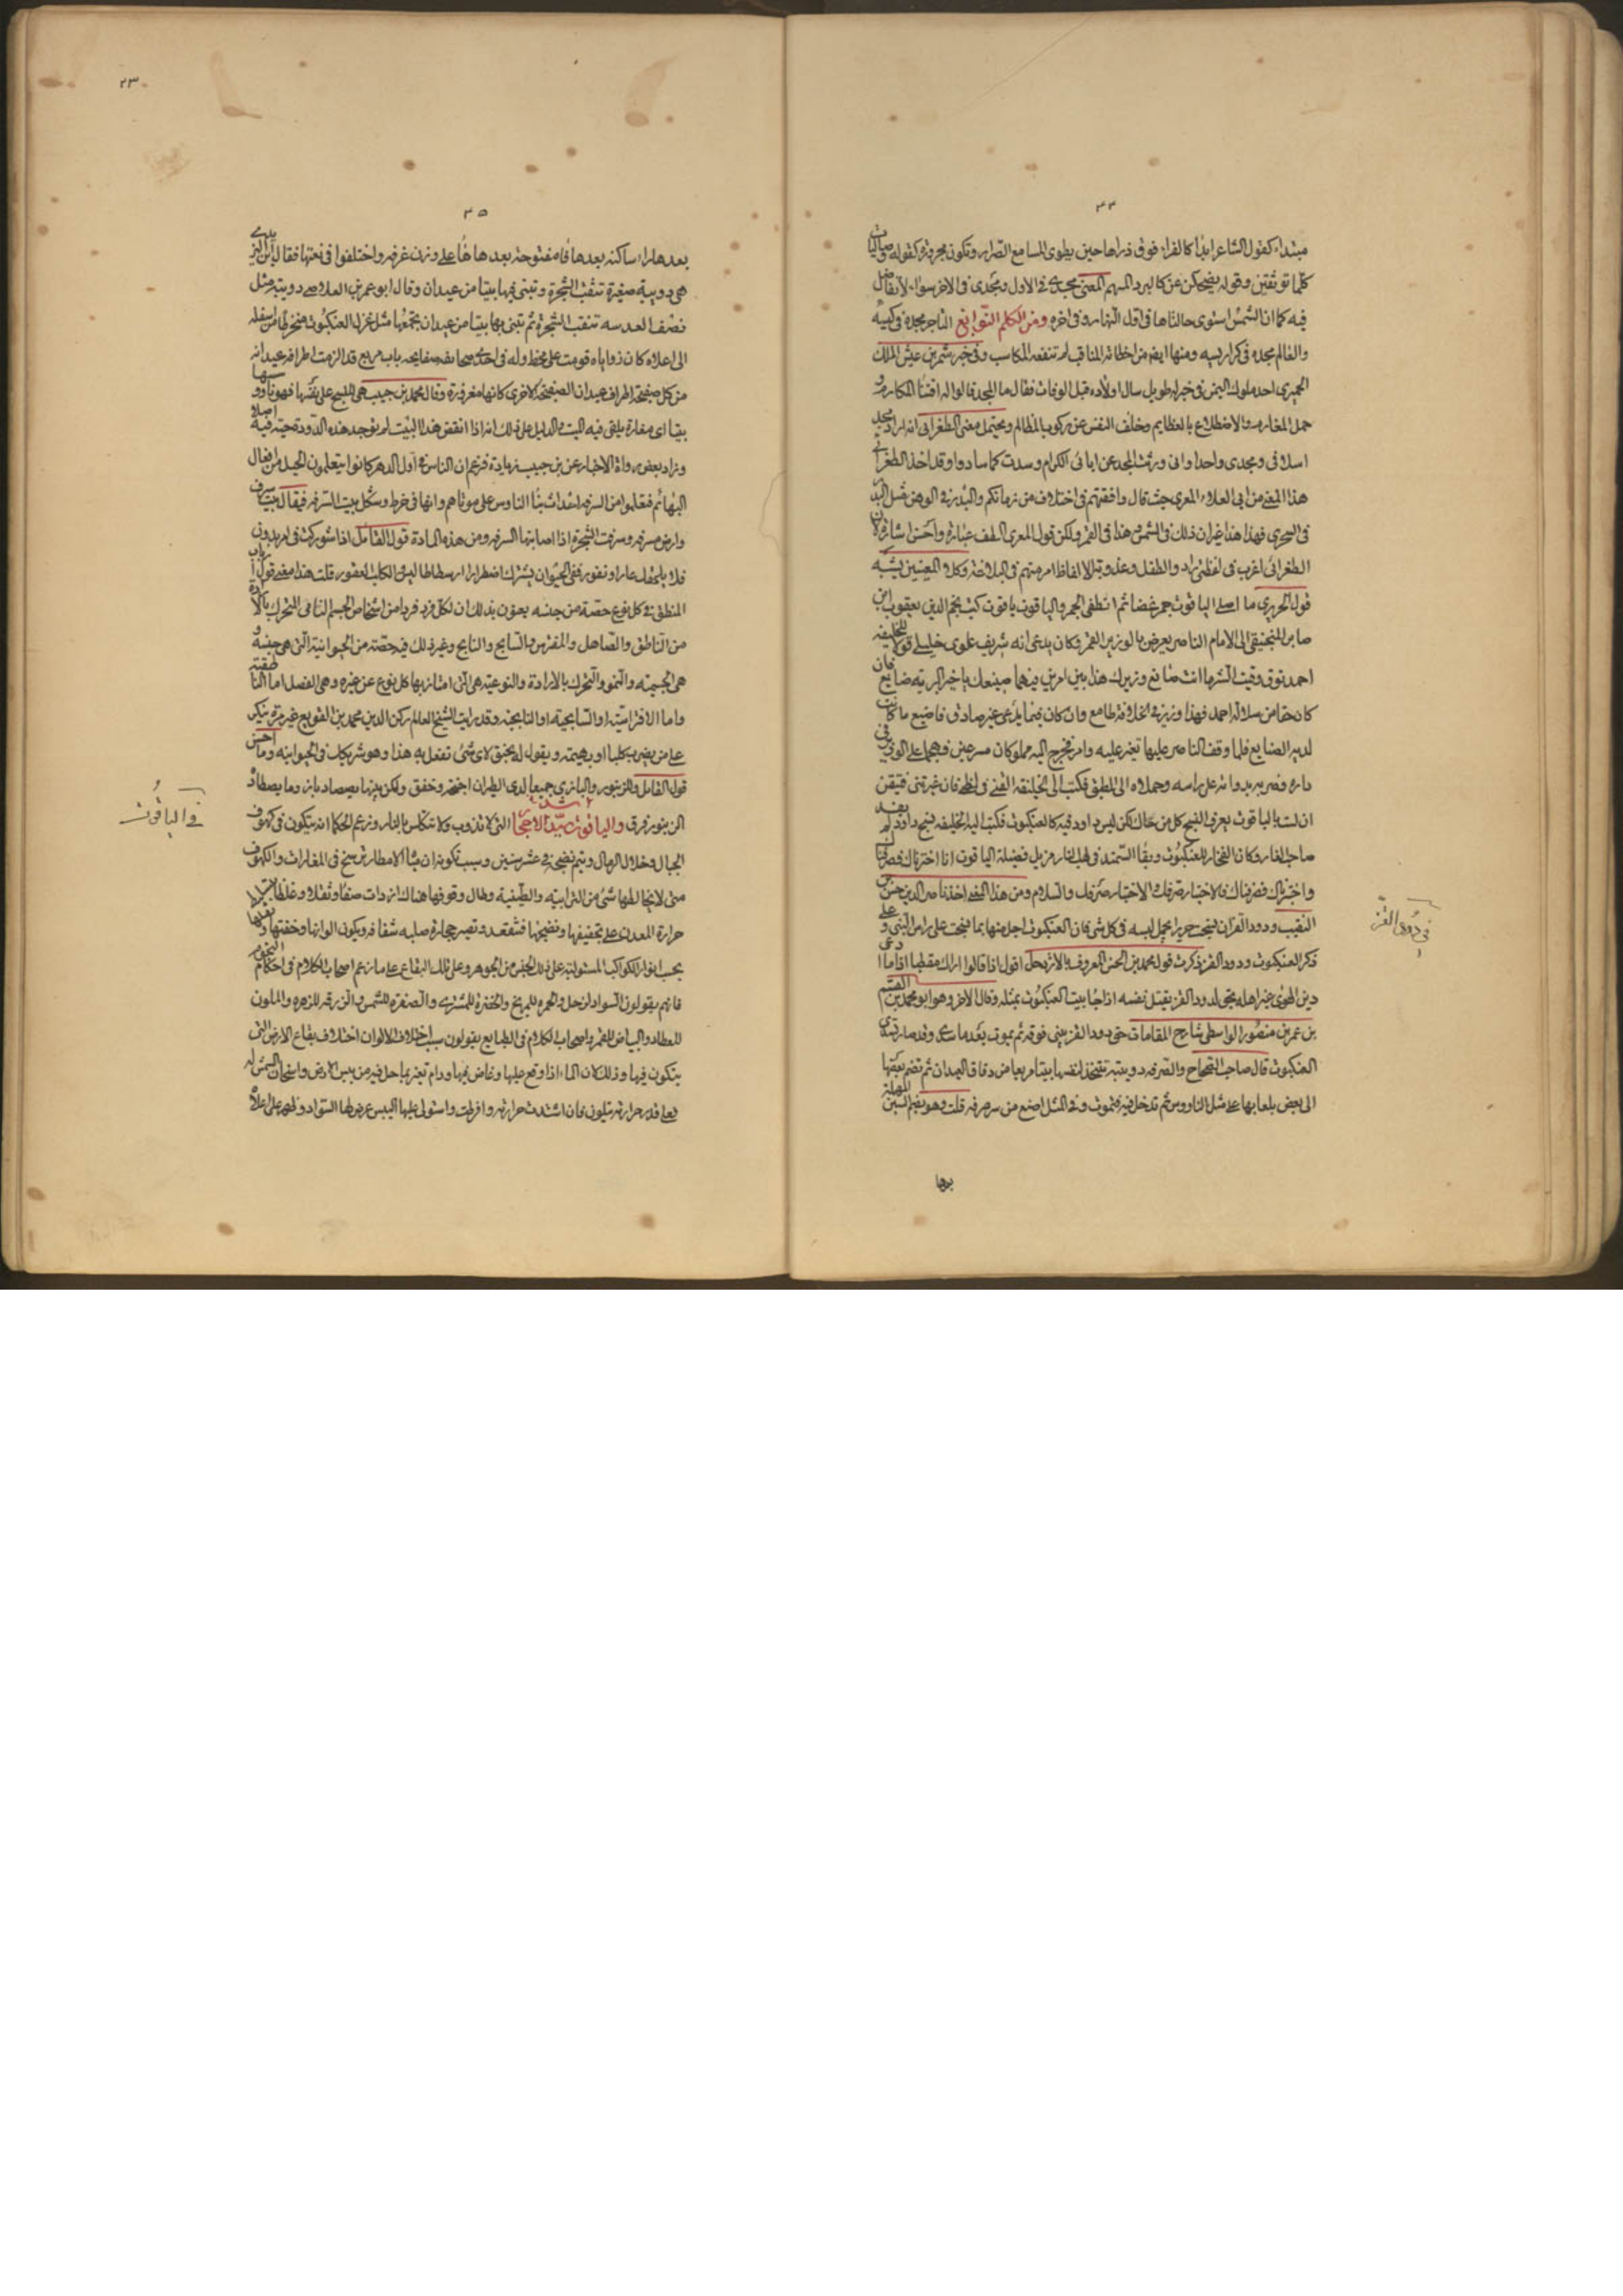 ٣٤
مبتداء كقول الشاعر ابدا كالفراء فوق ذراها حين يطوى المسامع الصرار وتكون مجرورة كقوله وصاليات
فيه كما ان الشمس استوى حالتاها فى اول النهار وفى اخره ومن الكلم النوابغ التاجر مجده فى كيسه
والعالم مجده فى كراريسه ومنها ايضا من اخطاته المناقب لم تنفعه المكاسب وفى خبر شمر بن عبس الملك
الحميرى احد ملوك اليمن فى خبر له طويل سال اولاده قبل الوفات فقال ما المجد قالوا له اقتنا المكارم و
حمل المغارم والاضطلاع بالعظايم وخلف النفس عن ركوب المظالم ويحتمل معنى الطغرائى انه اراد مجد
اسلافى ومجدى واحد او انى ورثت المجد عن ابائى الكرام وسدت كما سادوا وقد اخذ الطغرائى
هذا المعنى من ابى العلاء المعرى حيث قال وافقتهم فى اختلاف من زمانكم والبدر فى الوهن مثل البدر
فى السحر فهذا هذا غير ان ذلك فى الشمس هذا فى القمر ولكن قول المعرى الطف عبارة واحسن اشارة لان
الطغرائى اغرب فى لفظتى راد والطفل
قول الحريرى ما اصلى الياقوت جمر غضا ثم انطفى الجمر والياقوت ياقوت كتب نجم الدين يعقوب ابن
صابر المنجنيقى الى الامام الناصر يعرض بالوزير القمى وكان يدعى انه شريف علوى خليلى قولا للخليفة
احمد توق وقيت الشر ما انت صانع وزيرك هذا بين امرين فيهما صنيعك يا خير البرية ضايع فان
كان حقا من سلالة احمد فهذا وزير فى الخلافة طامع وان كان فيما يدعى غير صادق فاضيع ما كانت
لديه الصنايع فلما وقف الناصر عليها تغير عليه وامر فخرج اليه مملوكان مسرعين فهجما على الوزير فى
داره فضرب بدواته على راسه وحملاه الى المطبق فكتب الى الخليفة القنى فى لظى فان غيرتنى فتيقن
ان لست بالياقوت يعرف النسج كل من حاك لكن ليس داود فيه كالعنكبوت فكتب اليه الخليفة نسج داود لم يفد
صاحب الغار وكان الفخار للعنكبوت وبقا السمند فى لهب النار مزيل فضيلة الياقوت انا اخترناك فصرفناك
واختبرناك فصرفناك فالاختيار صرفك والاختبار صرفك والسلام ومن هذا المعنى اخذ ناصر الدين حسن بن
النقيب ودود القز ان نسجت حريرا يجمل لبسه فى كل شى فان العنكبوت اجل منها بما نسجت على راس النبى وعلى
ذكر العنكبوت ودود القز ذكرت قول محمد بن الحسن المعروف
دين الهوى غير اهله يحق لدود القز يقتل نفسه اذا جا بيت العنكبوت بمثله وقال الاخر وهو ابو محمد بن القسم
بن عمر بن منصور الواسطى شارح المقامات حتى دود القز يبنى فوقه ثم يموت
العنكبوت قال صاحب الصحاح والسرفه دويبة تتخذ لنفسها بيتا مربعا من دقاق العيدان تضم بعضها
الى بعض بلعابها على مثل الناووس ثم تدخل فيه فتموت وفى المثل اصنع من سرفه قلت وهو بضم السين المهملة
بعدها
فى دود القز
٢٣
٣٥
بعدها راء ساكنه بعدها فاء مفتوحة بعدها هاء على وزن غرفه واختلفوا فى نعتها فقال
هى دويبة صغيرة تنقب الشجرة وتبنى فيها بيتا من عيدان وقال ابو عمر بن العلا هى دويبة مثل
نصف العدسه تنقب الشجرة ثم تبنى بها بيتا من عيدان تجمعها مثل غزل العنكبوت منخرطا من اسفله
الى اعلاه كان زواياه قومت على مخط وله فى احدى صفايحه باب مربع قد الزمت اطراف عيدانه
من كل صفيحة اطراف عيدان الصفيحة الاخرى كانها مغروزة وقال محمد بن حبيب هى
وزاد بعض رواة الاخبار عن بن حبيب زيادة فزعم ان الناس فى اول الدهر كانوا يتعلمون الحيل من افعال
البهائم فتعلموا من السرفه احداث بنا الناووس على موتاهم وانها فى خرط وشكل بيت السرفه فيقال بيت سرف
وارض سرفه وسرفت الشجرة اذا اصابتها السرفه ومن هذه المادة قول القائل
المنطق فى كل نوع حصة من جنسه يعنون بذلك ان لكل فرد فرد من اشخاص الجسم النامى المتحرك بالارادة
من الناطق والصاهل والمفترس والسابح والنابح وغير ذلك فيه حصته من الحيوانية التى هى جنسه و
هى الجسمية والنمو والتحرك بالارادة والنوعية هى التى امتاز بها كل نوع عن غيره وهى الفصل اما الناطقية
واما الافتراسية او السابحية او النابحية وقد رايت الشيخ العالم ركن الدين محمد بن القوبع غير مرة ينكر
على من يضرب كلبا او بهيمة ويقول له بحنق لاى شى تفعل به هذا وهو شريكك فى الحيوانيه وما احسن
قول القائل والزنبور والبازى جميعا لدى الطيران اجنحة وخفق ولكن بين ما يصطاد باز وما يصطاد
الزنبور فرق والياقوت سيد الاحجار التى لا تذوب ولا تتكلس بالنار وزعم الحكما انه يتكون فى كهوف
الجبال وخلال الرمال ويتم نضجه فى عشر سنين وسبب تكونه ان مياه الامطار ترسخ فى المغارات والكهوف
متى لا يخالطها شى من الترابية والطينية وطال وقوفها هناك ازدادت صفا وثقلا وغلظا
حرارة المعدن على تجفيفها ونضجها فتنعقد وتصير حجارة صلبه شفافه ويكون الوانها وخفتها وثقلها
بحسب انوار الكواكب المستولية على ذلك الجنس من الجوهر وعلى تلك البقاع على ما زعم اصحاب الكلام فى احكام النجوم
فانهم يقولون السواد لزحل والحمره للمريخ والخضرة للمشترى والصفرة للشمس والزرقه للزهره والملون
لعطارد والبياض للقمر واصحاب الكلام فى الطبايع يقولون سبب اختلاف الالوان اختلاف بقاع الارض التى
يتكون فيها وذلك لان الماء اذا وقع عليها وغاض فيها ودام تغير بما حل فيه من يبس الارض واسخان الشمس له
فعلى قدر حرارته يتلون فان اشتدت حرارته وافرطت واستولى عليها اليبس عرض لها السواد وظهر على اعلاه
فى الياقوت